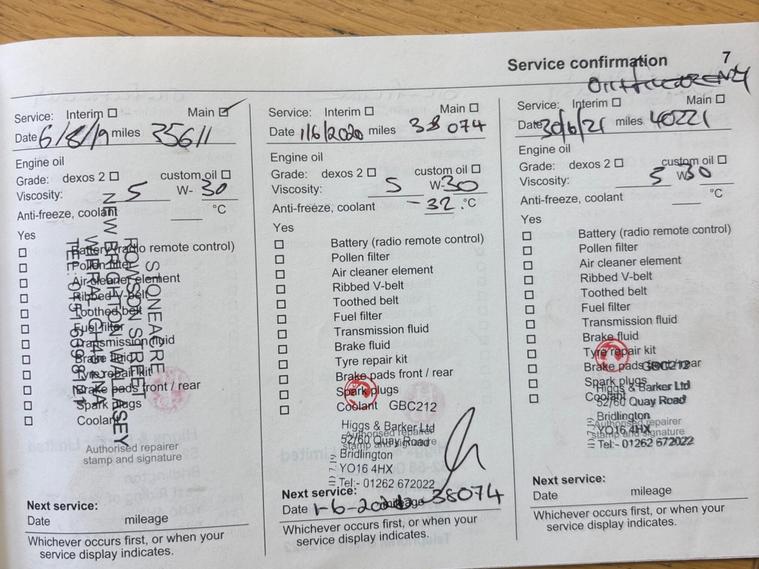 Service confirmation 7
Service: Interim Main
Date 6/8/19 miles 35611
Engine oil
Grade: dexos 2 custom oil
Viscosity: 5 W- 30
Anti-freeze, coolant °C
Yes
Battery (radio remote control)
Pollen filter
Air cleaner element
Ribbed V-belt
Toothed belt
Fuel filter
Transmission fluid
Brake fluid
Tyre repair kit
Brake pads front / rear
Spark plugs
Coolant
STONEACRE
ROWSON STREET
NEW BRIGHTON WALLASEY
Authorised repairer
stamp and signature
Next service:
Date mileage
Whichever occurs first, or when your
service display indicates.
Service: Interim Main
Date 1/6/2020 miles 38 074
Engine oil
Grade: dexos 2 custom oil
Viscosity: 5 W- 30
Anti-freeze, coolant -32 °C
Yes
Battery (radio remote control)
Pollen filter
Air cleaner element
Ribbed V-belt
Toothed belt
Fuel filter
Transmission fluid
Brake fluid
Tyre repair kit
Brake pads front / rear
Spark plugs
Coolant GBC212
Higgs & Barker Ltd
Authorised repairer
52/60 Quay Road
stamp and signature
Bridlington
YO16 4HX
Tel:- 01262 672022
Next service:
Date mileage 38074
Whichever occurs first, or when your
service display indicates.
Service: Interim Main
Date 30/6/21 miles 40221
Engine oil
Grade: dexos 2 custom oil
Viscosity: 5 W- 30
Anti-freeze, coolant °C
Yes
Battery (radio remote control)
Pollen filter
Air cleaner element
Ribbed V-belt
Toothed belt
Fuel filter
Transmission fluid
Brake fluid
Tyre repair kit
Brake pads front / rear
GBC212
Spark plugs
Higgs & Barker Ltd
Coolant
52/60 Quay Road
Bridlington
Authorised repairer
YO16 4HX
stamp and signature
Tel:- 01262 672022
Next service:
Date mileage
Whichever occurs first, or when your
service display indicates.